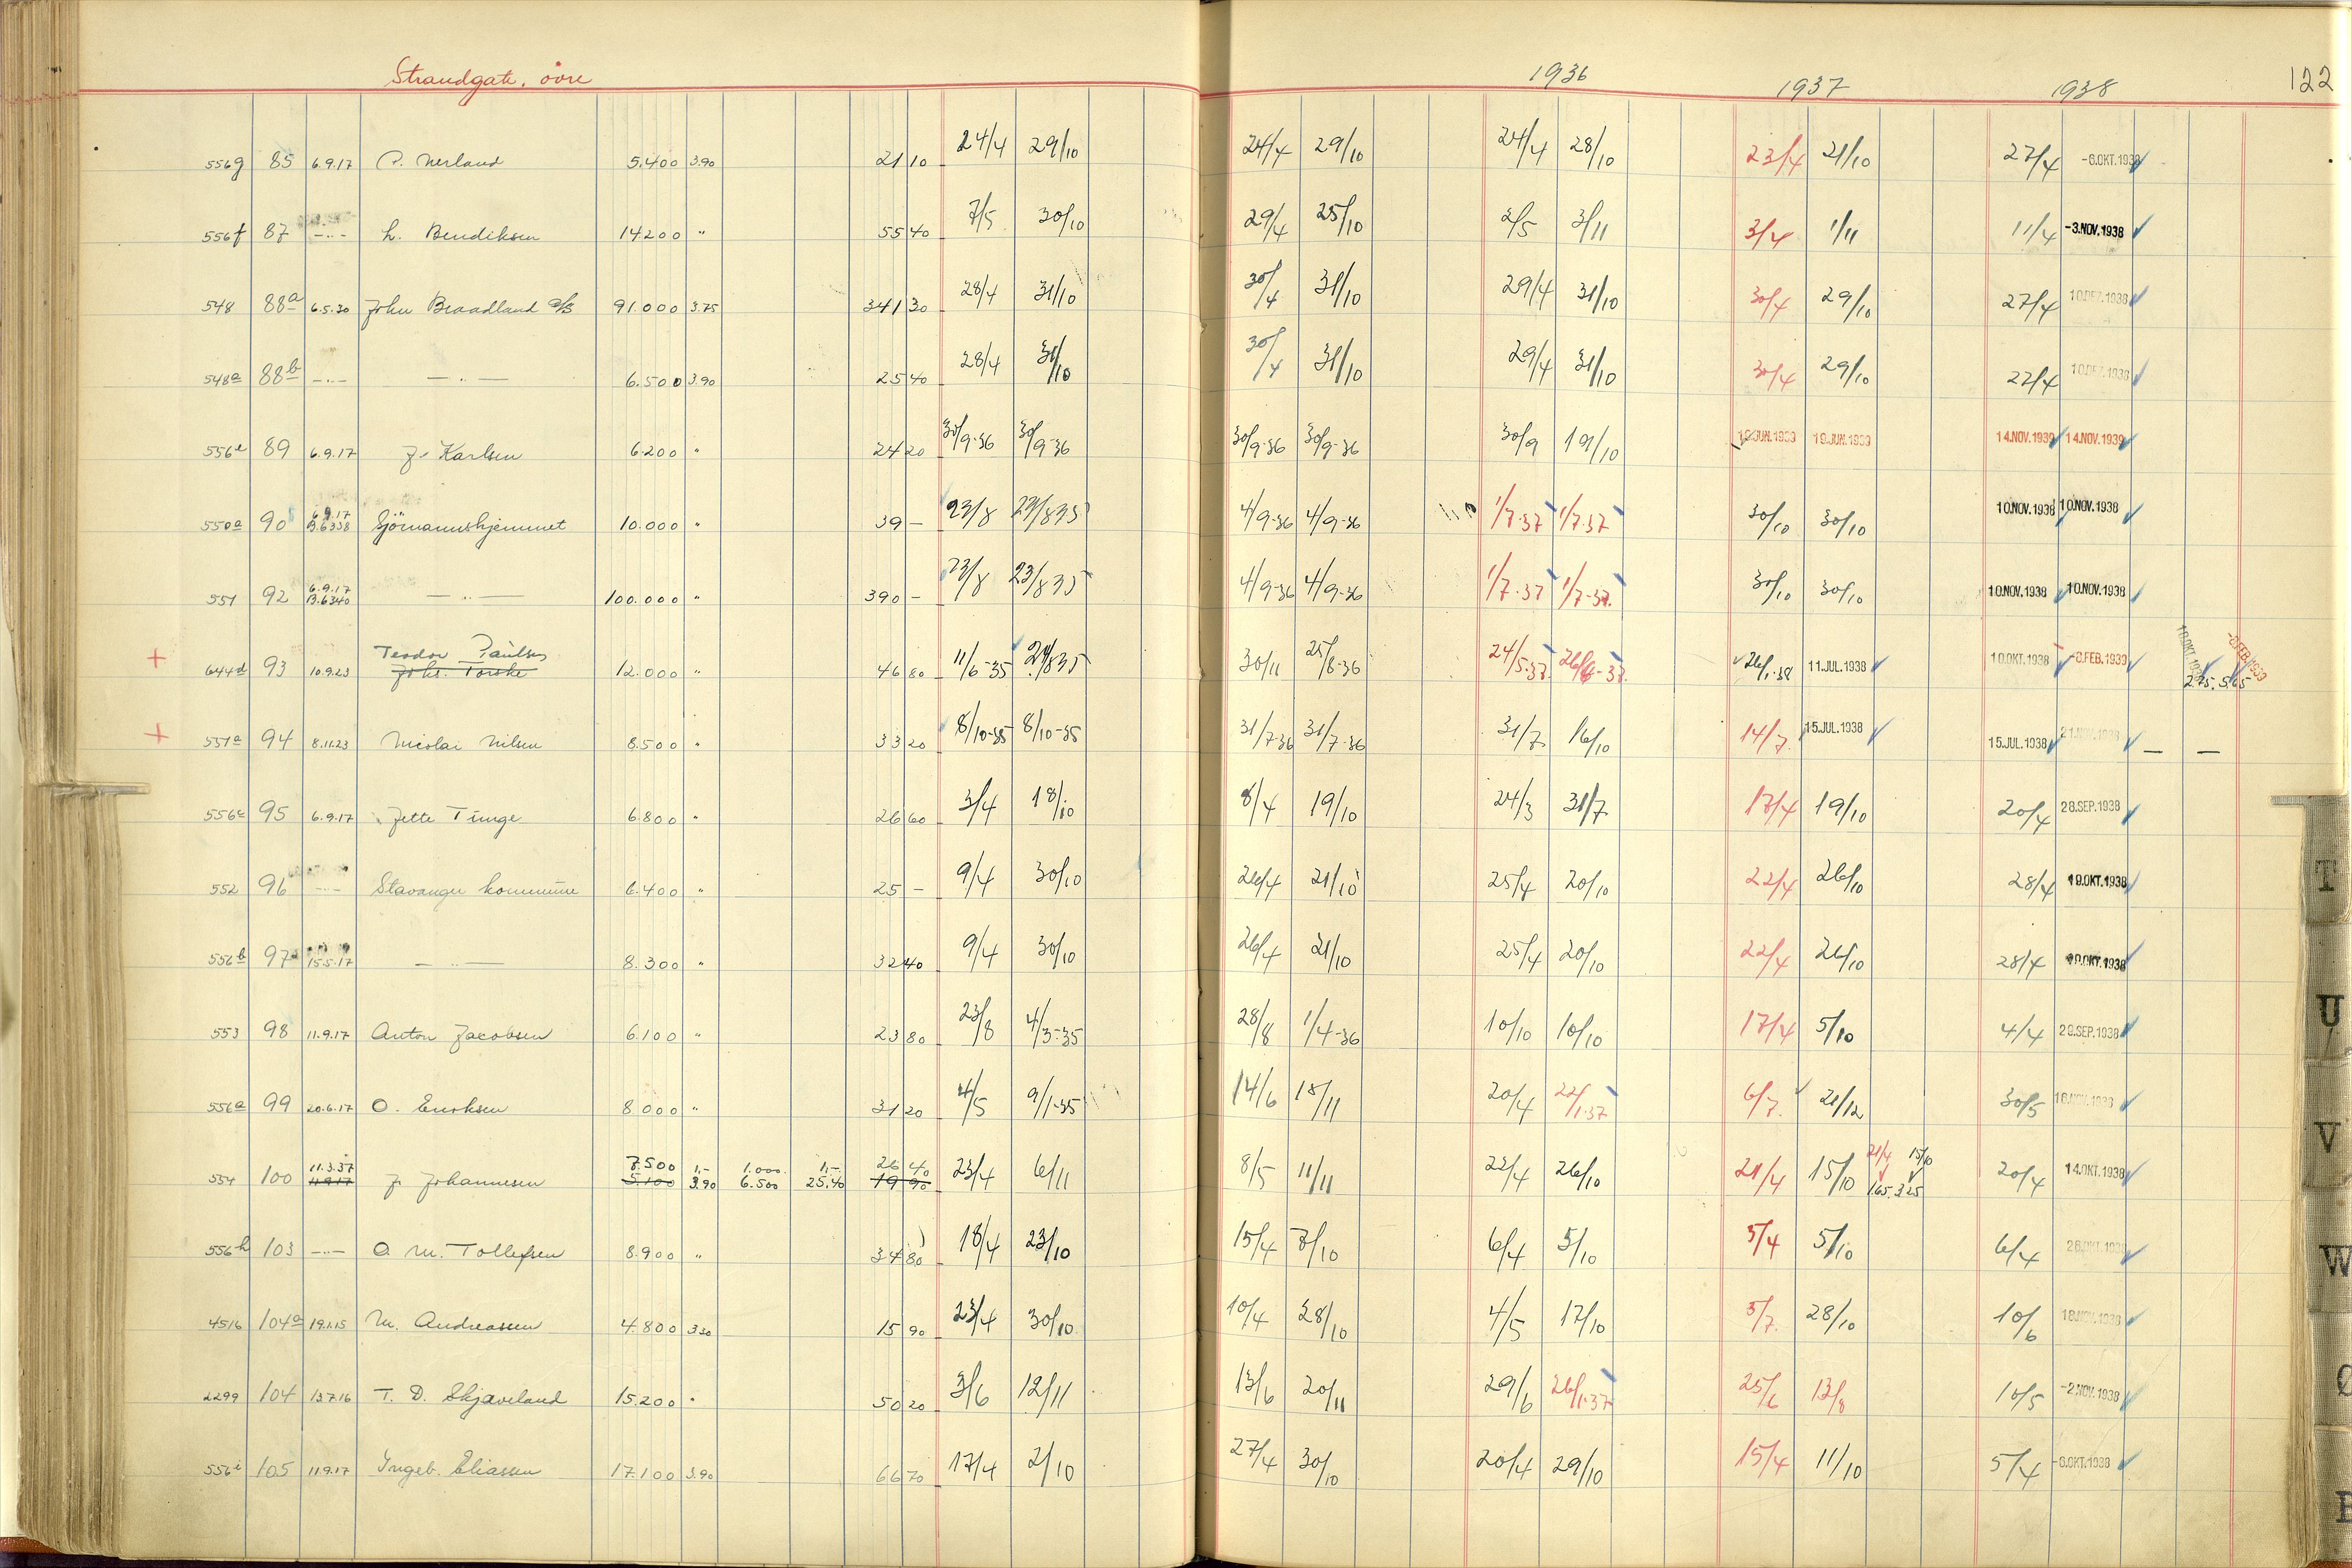 Strandgate, övre 1936 1937 1938 122
556g 85 6.9.17 P. Nerland 5.400 3.90 21 10 24/4 29/10 24/4 29/10 24/4 28/10 23/4 21/10 27/4 -6.OKT.1938
556f 87 -"- L. Bendiksen 14200 " 55 40 7/5 30/10 29/4 25/10 2/5 3/11 3/4 1/11 11/4 -3.NOV.1938
548 88a 6.5.30 John Braadland A/S 91.000 3.75 341 30 28/4 31/10 30/4 31/10 29/4 31/10 30/4 29/10 27/4 10.DEZ.1938
548a 88b -"- -"- 6.500 3.90 25 40 28/4 31/10 30/4 31/10 29/4 31/10 30/4 29/10 27/4 10.DEZ.1938
556e 89 6.9.17 J. Karlsen 6.200 " 24 20 30/9-36 30/9-36 30/9-36 30/9-36 30/9 19/10 19.JUN.1939 19.JUN.1939 14.NOV.1939 14.NOV.1939
6.9.17
550a 90 B.6338 Sjömannshjemmet 10.000 " 39 - 23/8 23/8 35 4/9-36 4/9-36 1/7-37 1/7-37 30/10 30/10 10.NOV.1938 10.NOV.1938
6.9.17
551 92 B.6340 -"- 100.000 " 390 - 23/8 23/8 35 4/9-36 4/9-36 1/7-37 1/7-37 30/10 30/10 10.NOV.1938 10.NOV.1938
Teodor Paulsen
+ 644d 93 10.9.23 Johs. Torske 12.000 " 46 80 11/6-35 30/11 25/8-36 24/5-37 26/1-38 11.JUL.1938 10.OKT.1938 -8.FEB.1939 10.OKT.193 -8.FEB.1939
2.75. 5.65
+ 551a 94 8.11.23 Nicolai Nilsen 8.500 " 33 20 8/10-35 8/10-35 31/7-36 31/7-36 31/7 16/10 14/7 15.JUL.1938 15.JUL.1938 21.NOV.1938 — —
556c 95 6.9.17 Jette Tunge 6.800 " 26 60 3/4 18/10 8/4 19/10 24/3 31/7 17/4 19/10 20/4 28.SEP.1938
552 96 -"- Stavanger kommune 6.400 " 25 - 9/4 30/10 26/4 21/10 25/4 20/10 22/4 26/10 28/4 19.OKT.1938
556b 97 15.5.17 -"- 8.300 " 32 40 9/4 30/10 26/4 21/10 25/4 20/10 22/4 26/10 28/4 19.OKT.1938
553 98 11.9.17 Anton Jacobsen 6.100 " 23 80 23/8 4/3-35 28/8 1/4-36 10/10 10/10 17/4 5/10 4/4 29.SEP.1938
556a 99 20.6.17 O. Enoksen 8.000 " 31 20 4/5 9/1-35 14/6 18/11 20/4 22/1-37 6/7 21/12 30/5 16.NOV.1938
11.3.37 7.500 1,- 1.000 1,- 26 40 21/4 15/10
554 100 11.9.17 J. Johannesen 5.100 3.90 6.500 25,40 19 90 23/4 6/11 8/5 11/11 22/4 26/10 21/4 15/10 1.65. 3.25 20/4 14.OKT.1938
556h 103 -"- O. M. Tollefsen 8.900 " 34 80 18/4 23/10 15/4 7/10 6/4 5/10 5/4 5/10 6/4 26.OKT.1938
4516 104a 19.1.15 M. Andreassen 4.800 3.30 15 90 23/4 30/10 10/4 28/10 4/5 17/10 5/7 28/10 10/6 18.NOV.1938
2299 104 13.7.16 T. D. Skjæveland 15.200 " 50 20 3/6 12/11 13/6 20/11 29/6 26/1-37 25/6 13/8 10/5 -2.NOV.1938
556i 105 11.9.17 Ingeb. Eliassen 17.100 3.90 66 70 17/4 2/10 27/4 30/10 20/4 29/10 15/4 11/10 5/4 -6.OKT.1938
T
U
V
W
Ø